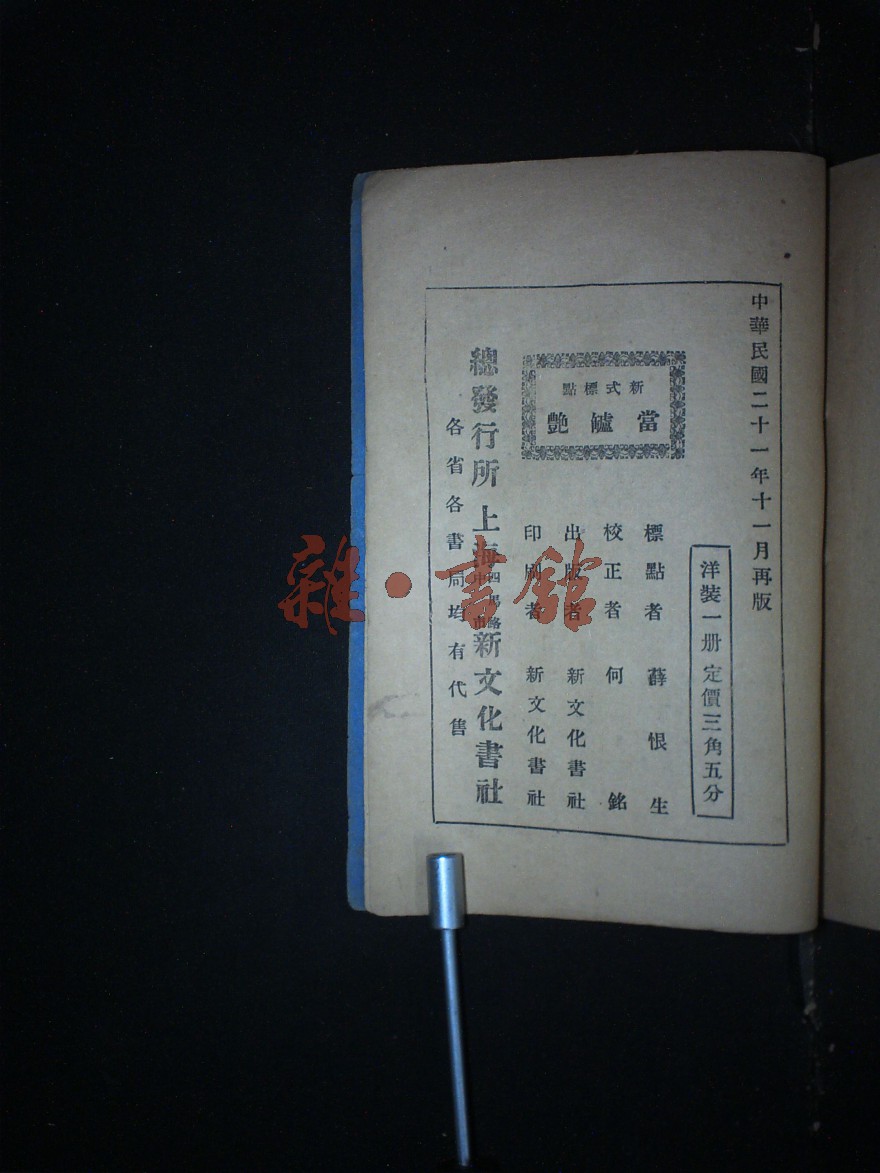 中華民國二十一年十一月再版
洋裝一册 定價三角五分
新式標點
當罏艶
標點者 薛恨生
校正者 何銘
出版者 新文化書社
印刷者 新文化書社
總發行所 上海四馬路中市新文化書社
各省各書局均有代售
雜·書館